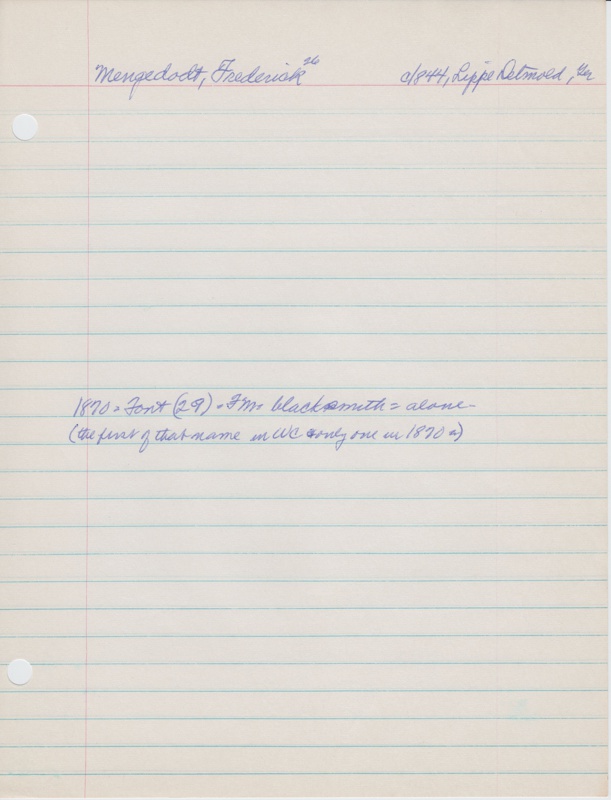 Mengedodt, Frederick 26 c/844, Lippe Detmold, Ger
1870 = Font (29) = FM = blacksmith = alone
(the first of that name in WC & only one in 1870)